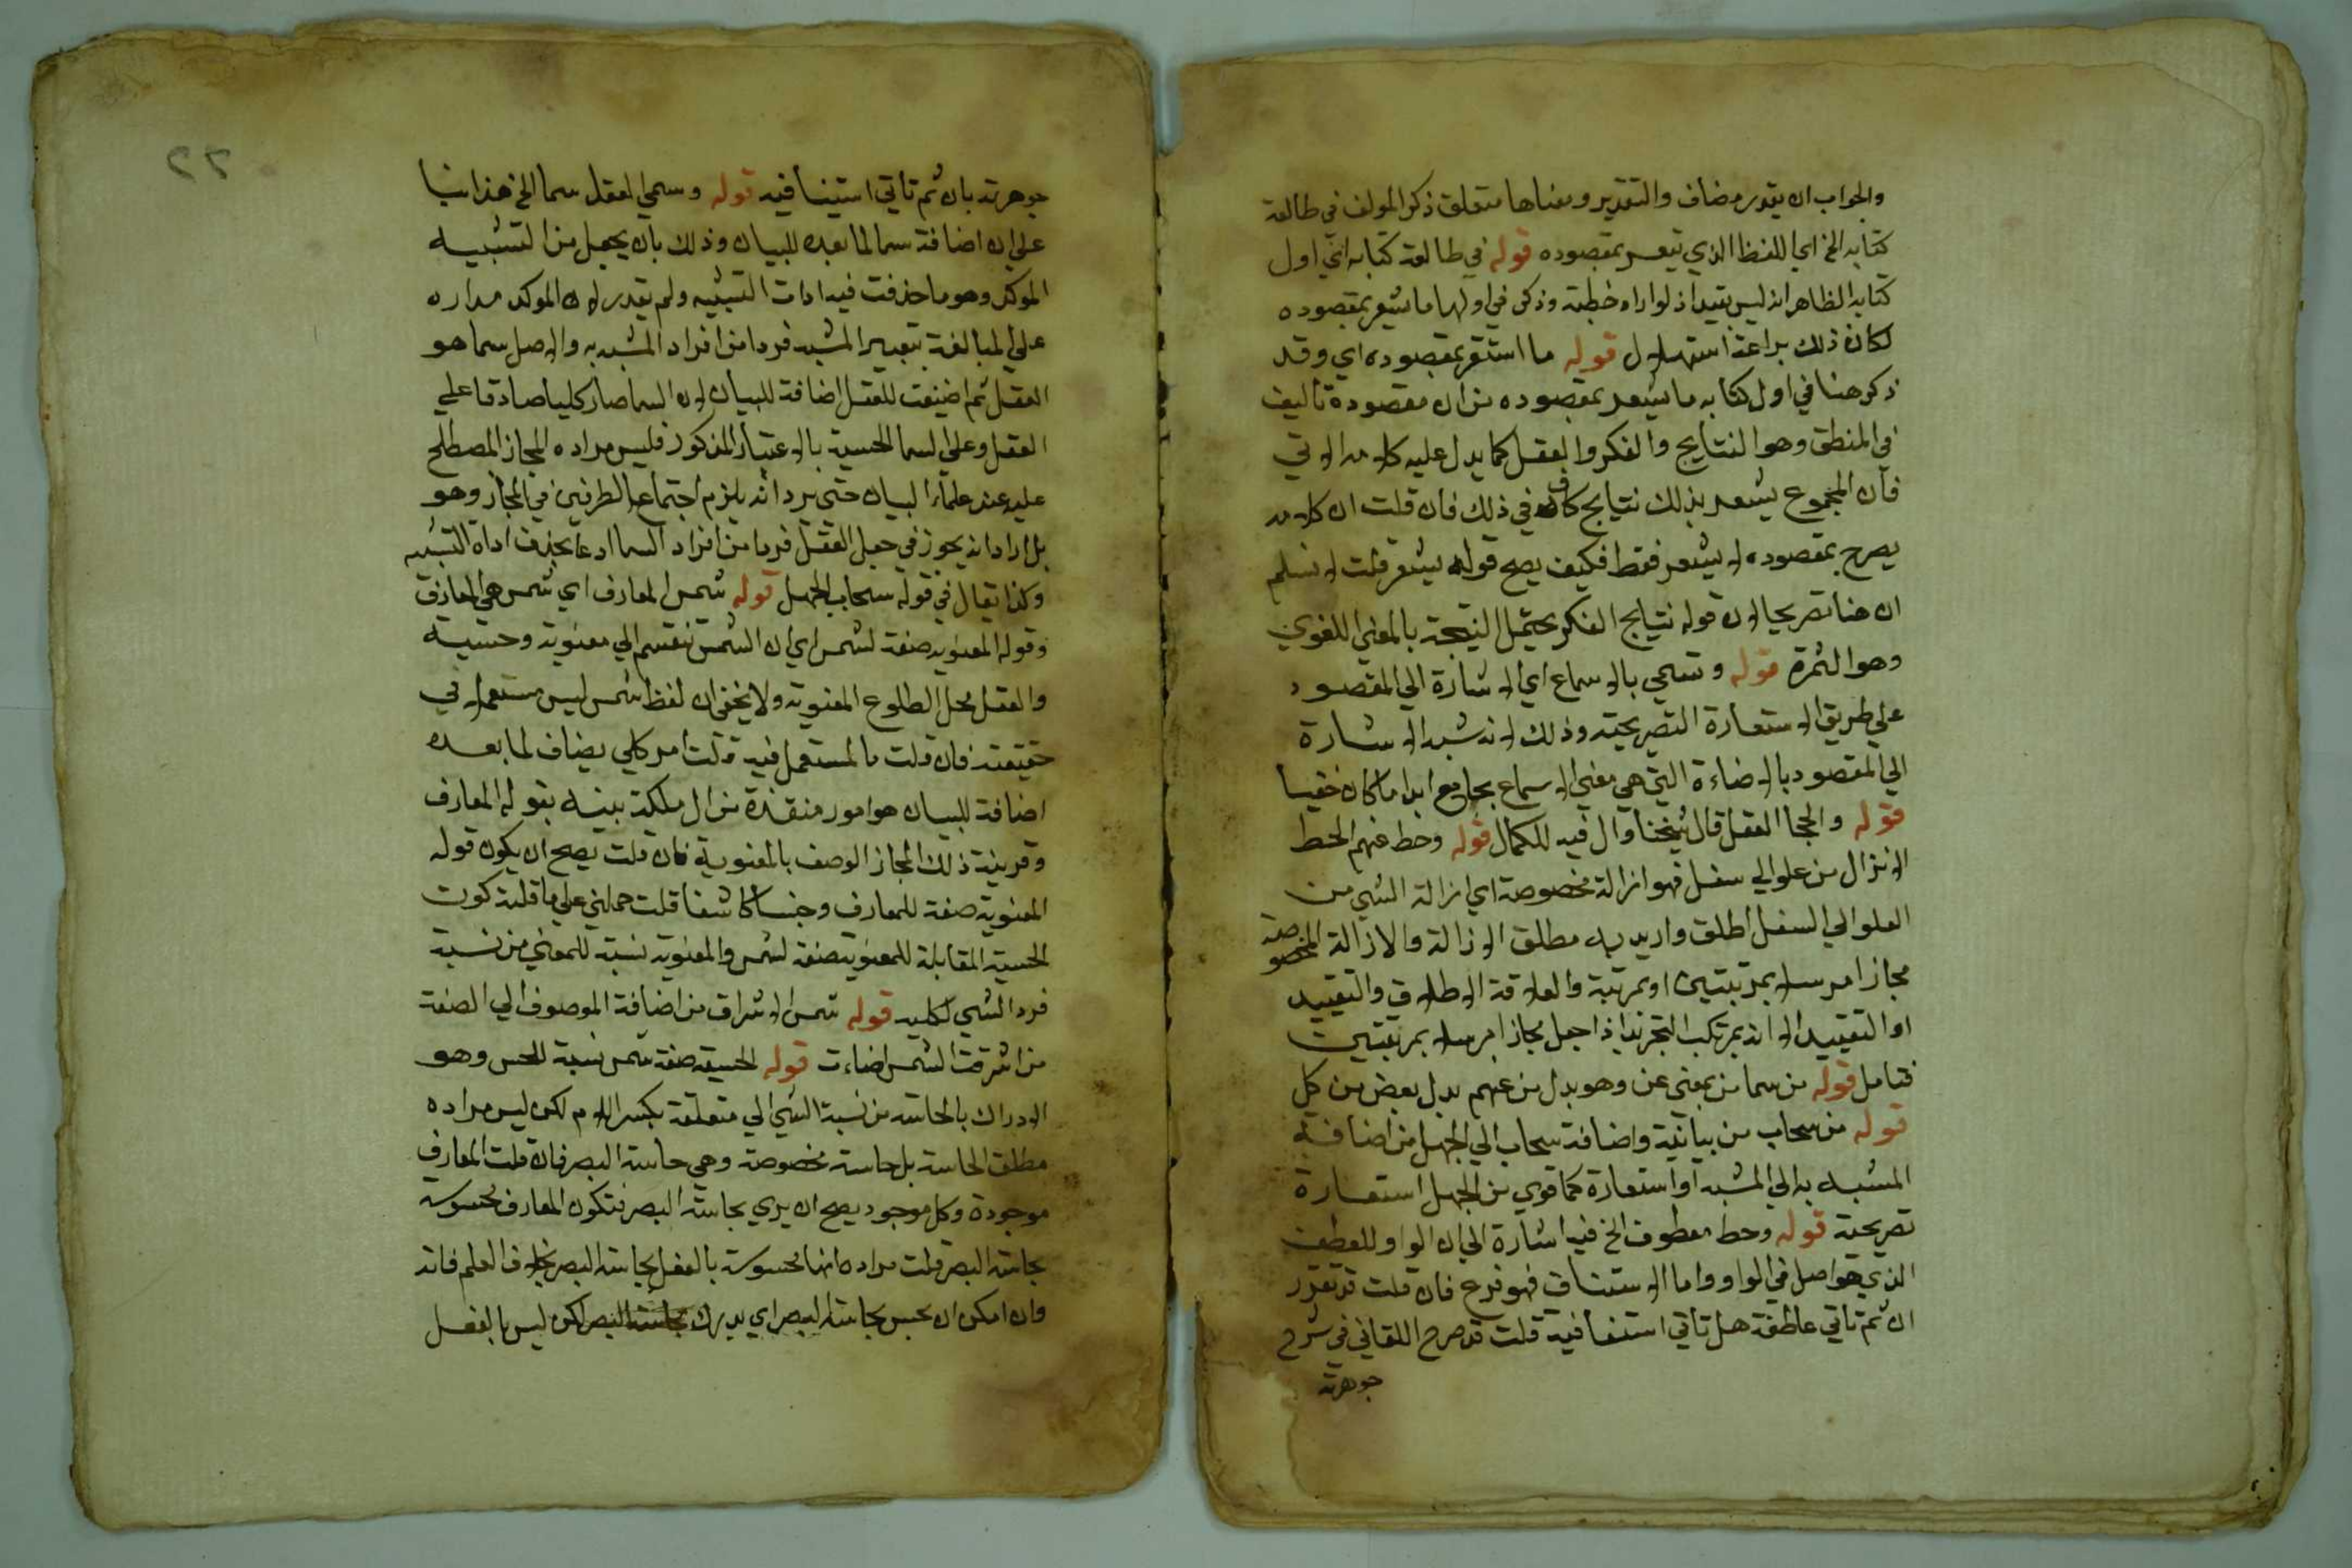 والجواب ان يقدر مضاف والتقدير ومعناها متعلق ذكر المولف في طالعة
كتابه الخ اي اللفظ الذي يشعر بمقصوده قوله في طالعة كتابه اي اول
كتابه الظاهر انه ليس بقيد اذ لو اراد خطبة وذكر في اولها ما يشعر بمقصوده
لكان ذلك براعة استهلال قوله ما اشتقر بمقصوده اي وقد
ذكر هنا في اول كتابه ما يشعر بمقصوده من ان مقصوده تأليف
في المنطق وهو النتايج والفكر والعقل كما يدل عليه كلامه الاتي
فان المجموع يشعر بذلك نتايج كاف في ذلك فان قلت ان كلامه
يصرح بمقصوده لا يشعر فقط فكيف يصح قوله يشعر قلت لا نسلم
ان هنا تصريحا لان قوله نتايج الفكر يحتمل النتيجة بالمعني اللغوي
وهو الثمرة قوله وتسمي بالاسماع اي الاشارة الي المقصود
علي طريق الاستعارة التصريحية وذلك لانه شبه الاشارة
الي المقصود بالاضاءة التي هي معني الاسماع بجامع ابدا ما كان خفيا
قوله والحجا العقل قال شيخنا وال فيه للكمال قوله وحط عنهم الحط
الانزال من علو الي سفل فهو ازالة مخصوصة اي ازالة الشي من
العلو الي السفل اطلق واريد به مطلق الازالة والازالة المخصوصة
مجازا مرسلا بمرتبتين او بمرتبة والعلاقة الاطلاق والتقييد
او التقييد الا انه يرتكب التجريد اذا جعل مجازا مرسلا بمرتبتين
فتامل قوله من سما من بمعني عن وهو بدل من عنهم بدل بعض من كل
قوله من سحاب من بيانية واضافة سحاب الي الجهل من اضافة
المشبه به الي المشبه او استعارة كما قوي من الجهل استعارة
تصريحية قوله وحط معطوف الخ فيه اشارة الي ان الواو للعطف
الذي هو اصل في الواو واما الاستئناف فهو فرع فان قلت قد تقرر
ان ثم تاتي عاطفة هل تاتي استئنافية قلت قد صرح اللقاني في شرح
جوهرته
٢٢
جوهرته بان ثم تاتي استينافيه قوله وسمي العقل سما الخ هذا بنا
علي ان اضافة سما لما بعده للبيان وذلك بان يجعل من التشبيه
الموكد وهو ما حذفت فيه ادات التشبيه ولم يقدر لان الموكد مداره
علي المبالغة بتصيير المشبه فردا من افراد المشبه به والاصل سما هو
العقل ثم اضيفت للعقل اضافة للبيان لان السما صار كليا صادقا علي
العقل وعلي السما الحسية بالاعتبار المذكور فليس مراده المجاز المصطلح
عليه عند علماء البيان حتي يرد انه يلزم اجتماع الطرفين في المجاز وهو
بل اراد انه يجوز في جعل العقل فردا من افراد السما ادعا بحذف اداة التشبيه
وكذا يقال في قوله سحاب الجهل قوله شمس المعارف اي شمس هي المعارف
وقوله المعنويه صفة لشمس اي ان الشمس تنقسم الي معنوية وحسية
والعقل محل الطلوع المعنوية ولا يخفي ان لفظ شمس ليس مستعملا في
حقيقته فان قلت ما المستعمل فيه قلت امر كلي يضاف لما بعده
اضافة للبيان هو امور منقذة من الملكة بينه بقوله المعارف
وقرينة ذلك المجاز الوصف بالمعنوية فان قلت يصح ان يكون قوله
المعنوية صفة للمعارف وجنسا كاشفا قلت حملني علي ما قلته كون
الحسية المقابلة للمعنوية صفة لشمس والمعنوية نسبة للمعني من نسبة
فرد الشي لكليه قوله شمس الاشراق من اضافة الموصوف الي الصفة
من اشرقت الشمس اضاءت قوله الحسية صفة شمس نسبة للحس وهو
الادراك بالحاسة من نسبة الشي الي متعلقه بكسر اللام لكن ليس مراده
مطلق الحاسة بل حاسة مخصوصة وهي حاسة البصر فان قلت المعارف
موجودة وكل موجود يصح ان يري بحاسة البصر فتكون المعارف محسوسة
بحاسة البصر قلت مراده انها محسوسة بالفعل بحاسة البصر بخلاف العلم فانه
وان امكن ان يحس بحاسة البصر اي يدرك بحاسة البصر لكن ليس بالفعل